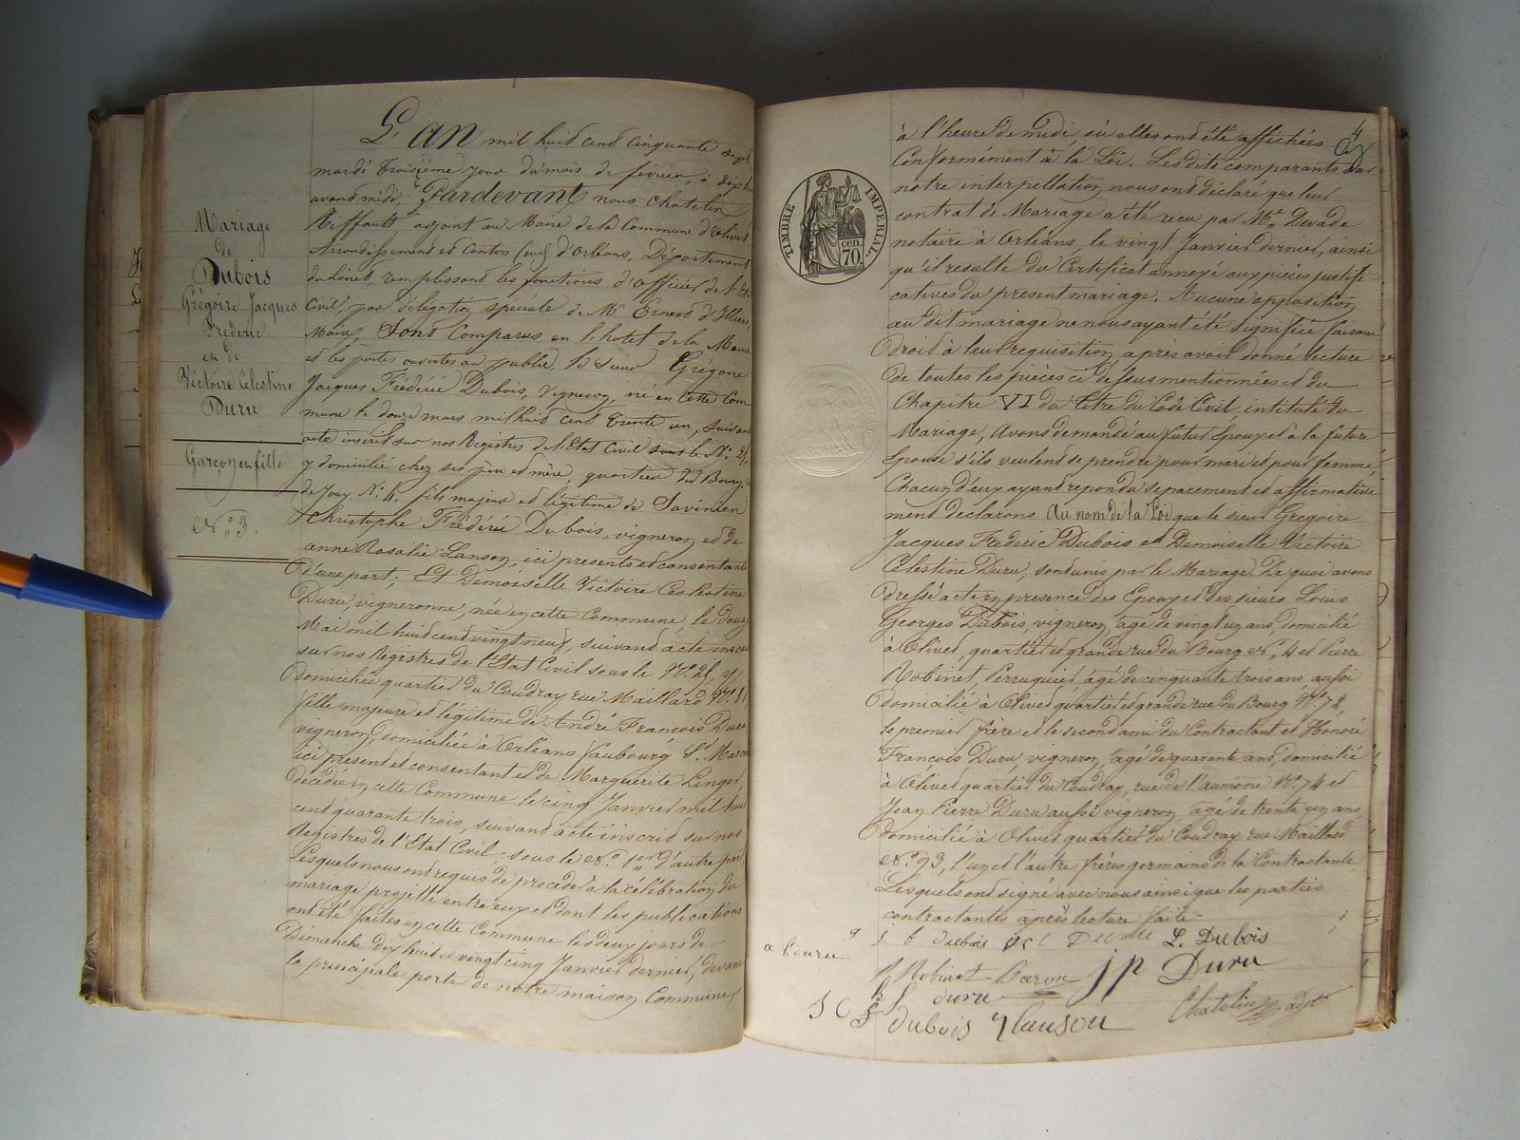 Mariage
de
Dubois
Grégoire Jacques
Frédéric
et de
Victoire Celestine
Duru
Garçon et fille
N.° 3.
L'an mil huit cent cinquante sept
mardi troisième jour du mois de février, à dix h
avant midi, Pardevant nous Chatelin
Riffault, adjoint au Maire de la Commune d'Olivet
Arrondissement et Canton Sud d'Orléans, Département
du Loiret, remplissant les fonctions d'officier de l'Et
Civil, par délégation spéciale de Mr Ernest d'Illiers,
Maire, Sont Comparus en l'hotel de la Mairie
et les portes ouvertes au public. Le Sieur Grégoire
Jacques Frédéric Dubois, Vigneron, né en cette Com
mune le douze mars mil huit cent trente un, suivant
acte inscrit sur nos Registres de l'Etat Civil sous le N.°
y domicilié chez ses père et mère, quartier du Bourg
N.° fils majeur et légitime de Savinien
Christophe Frédéric Dubois, vigneron et de
anne Rosalie Lanson, ici présents et consentant
d'une part; Et Demoiselle Victoire Celestine
Duru, vigneronne, née en cette Commune, le douze
Mai mil huit cent vingt neuf, suivant acte inscrit
sur nos Registres de l'Etat Civil sous le N.° y
domiciliée quartier du Coudray rue Maillard N.°
fille majeure et légitime de André François Duru
vigneron, domicilié à Orléans faubourg St Marceau
ici présent et consentant et de Marguerite Linget
décédée en cette Commune le cinq Janvier mil huit
cent quarante trois, suivant acte inscrit sur nos
Registres de l'Etat Civil sous le N.° 1er d'autre part
Lesquels nous ont requis de procéder à la célébration du
mariage projetté entre eux et dont les publications
ont été faites en cette Commune les deux jours de
Dimanche dix huit et vingt cinq Janvier dernier, devant
la principale porte de notre maison Commune
TIMBRE IMPERIAL.
70 cen.
à l'heure de midi, où elles ont été affichées
Conformément à la Loi. Les dits comparants sur
notre interpellation nous ont déclaré que leur
contrat de Mariage a été reçu par Me Devade
notaire à Orléans, le vingt Janvier dernier, ainsi
qu'il resulte du Certificat annexé aux pièces justifi-
catives du present mariage. Aucune opposition
au dit mariage ne nous ayant été signifiée, faisant
droit à leur requisition, après avoir donné lecture
de toutes les pièces ci dessus mentionnées et du
Chapitre VI du titre du Code Civil, intitulé du
Mariage, Avons demandé au futur Epoux et à la future
Epouse s'ils veulent se prendre pour mari et pour femme,
Chacun d'eux ayant repondu séparement et affirmative
ment declarons Au nom de la Loi que le sieur Gregoire
Jacques Frederic Dubois et Demoiselle Victoire
Celestine Duru, sont unis par le Mariage. De quoi avons
dressé acte en presence des Epoux et des sieurs Louis
Georges Dubois, vigneron, agé de vingt un ans, domicilié
à Olivet, quartier et grande rue du Bourg N.° 4 et Pierre
Robinet, Perruquier, agé de cinquante trois ans, aussi
domicilié à Olivet quartier et grande rue du Bourg N.° 78,
le premier frère et le second ami du Contractant et Honoré
François Duru, vigneron, agé de quarante ans, domicilié
à Olivet quartier du Coudray, rue de l'aumône N.° 74 et
Jean Pierre Duru aussi vigneron, agé de trente un ans,
domicilié à Olivet quartier du Coudray rue Maillard
N.° 93, l'un et l'autre frères germains de la Contractante
Lesquels ont signé avec nous ainsi que les parties
contractantes après lecture faite.
g j f dubois v c Duru L. Dubois
P Robinet jp Duru
duru
S C F dubois r lanson Chatelin adjt